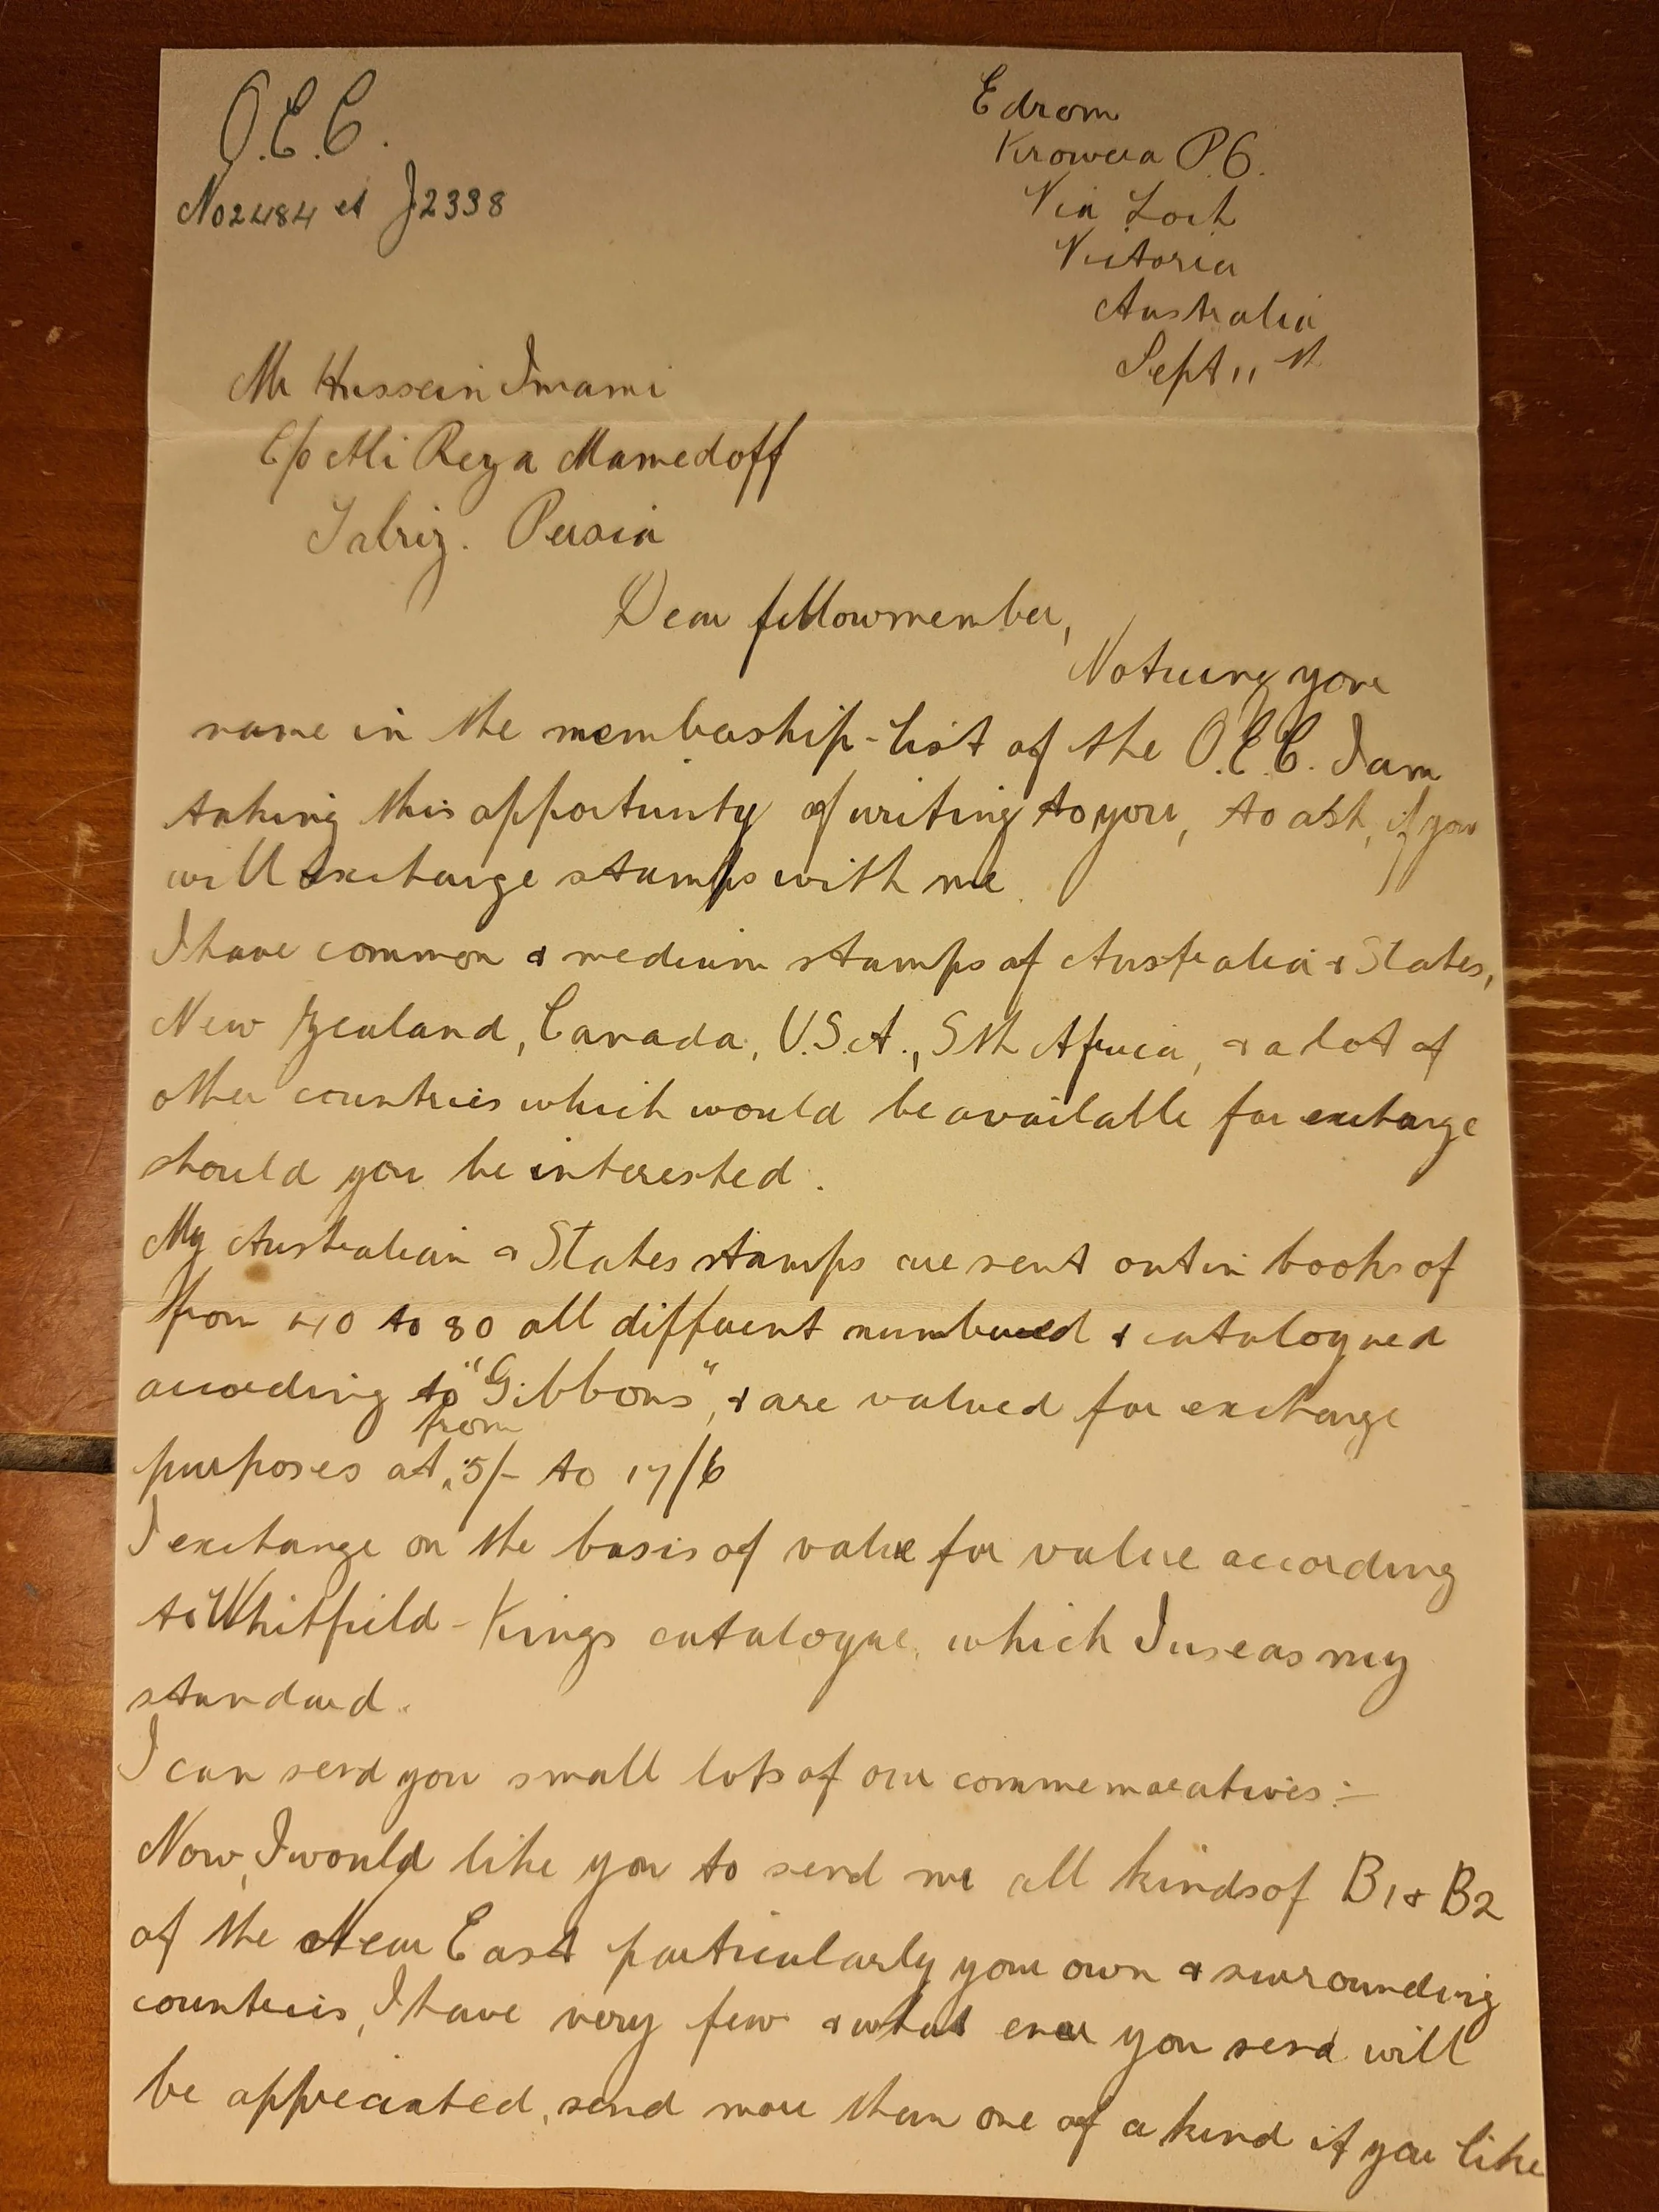 O.E.C.
No 2484 et J2338
Edrom
Krowera P.O.
Via Loch
Victoria
Australia
Sept 11st
Mr Hussein Imami
C/o Ali Reza Mamedoff
Tabriz. Persia
Dear fellowmember,
Noticing your
name in the membership-list of the O.E.C. I am
taking this opportunity of writing to you, to ask, if you
will exchange stamps with me.
I have common & medium stamps of Australia & States,
New Zealand, Canada, U.S.A., Sth Africa, & a lot of
other countries which would be available for exchange
should you be interested.
My Australian & States stamps are sent out in books of
from 40 to 80 all different numbered & catalogued
according to "Gibbons", & are valued for exchange
purposes at from 5/- to 17/6
I exchange on the basis of value for value according
to Whitfield-Kings catalogue, which I use as my
standard.
I can send you small lots of our commemoratives:-
Now, I would like you to send me all kinds of B1 & B2
of the Near East particularly your own & surrounding
countries, I have very few & what ever you send will
be appreciated, send more than one of a kind if you like